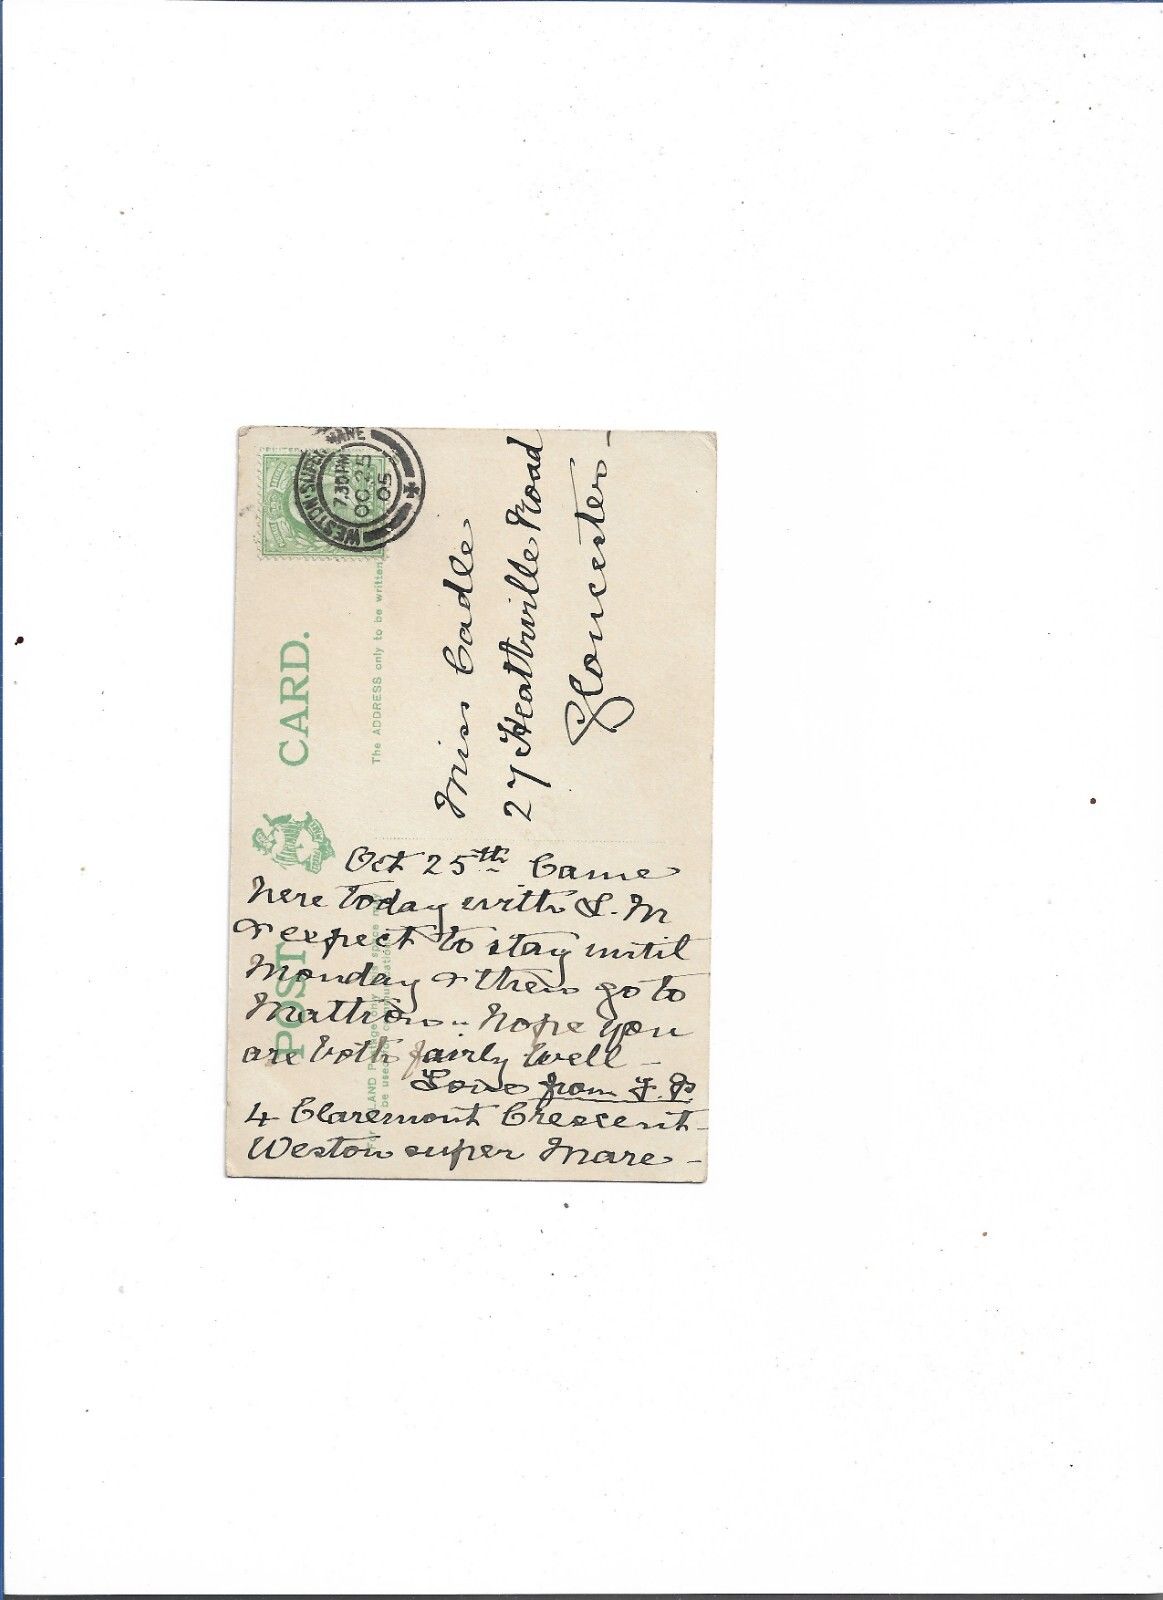 POST CARD.
WESTON-SUPER-MARE
7.30 PM
OC 25
05
For INLAND Postage only this space may
be used for communication
The ADDRESS only to be written
Miss Cadle
27 Heathville Road
Gloucester -
Oct 25th Came
here today with S. M
& expect to stay until
Monday & then go to
Mathon. Hope you
are both fairly well -
Love from F. P.
4 Claremont Crescent -
Weston super Mare -